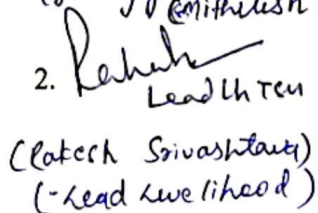 (Mithilesh
2. Rakesh
Lead LH TSU
(Rakesh Srivashtava)
(-Lead Livelihood)